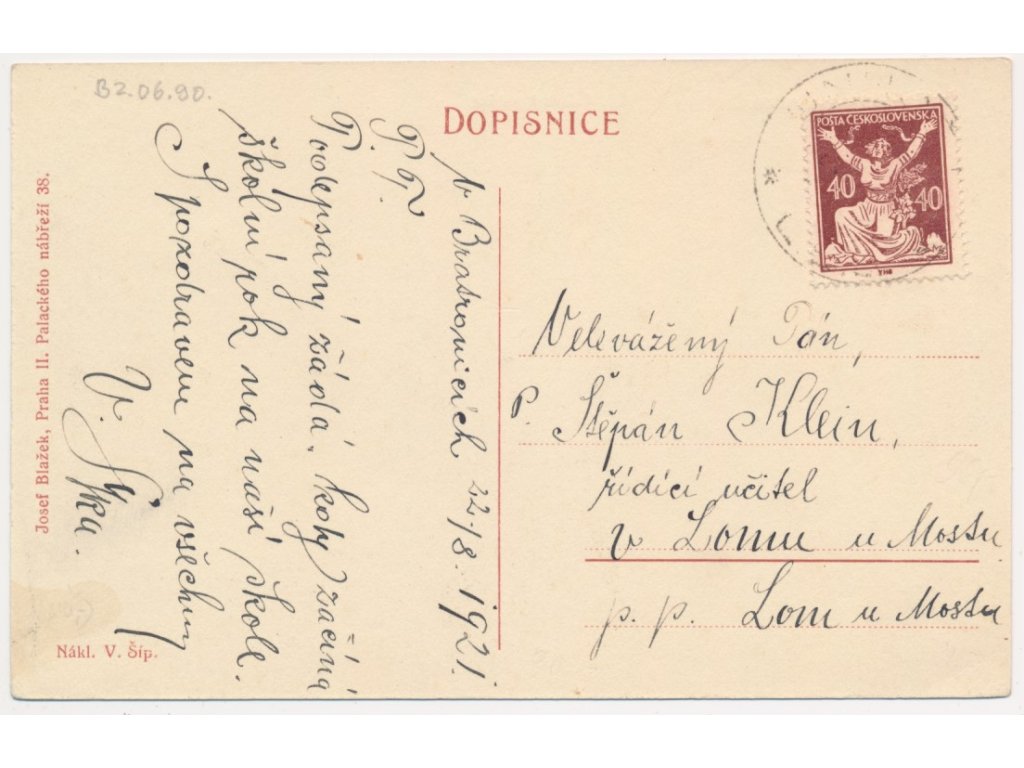 B2.06.90.
DOPISNICE
POŠTA ČESKOSLOVENSKÁ
40 40
V Bratronicích 22/8. 1921.
P. T.
Podepsaný žádá, kdy začíná
školní rok na naší škole.
S pozdravem na všechny
V.
Velevážený Pán,
P. Štěpán Klein,
řídící učitel
v Lomu u Mostu
p. p. Lom u Mostu
Josef Blažek, Praha II. Palackého nábřeží 38.
Nákl. V. Šíp.